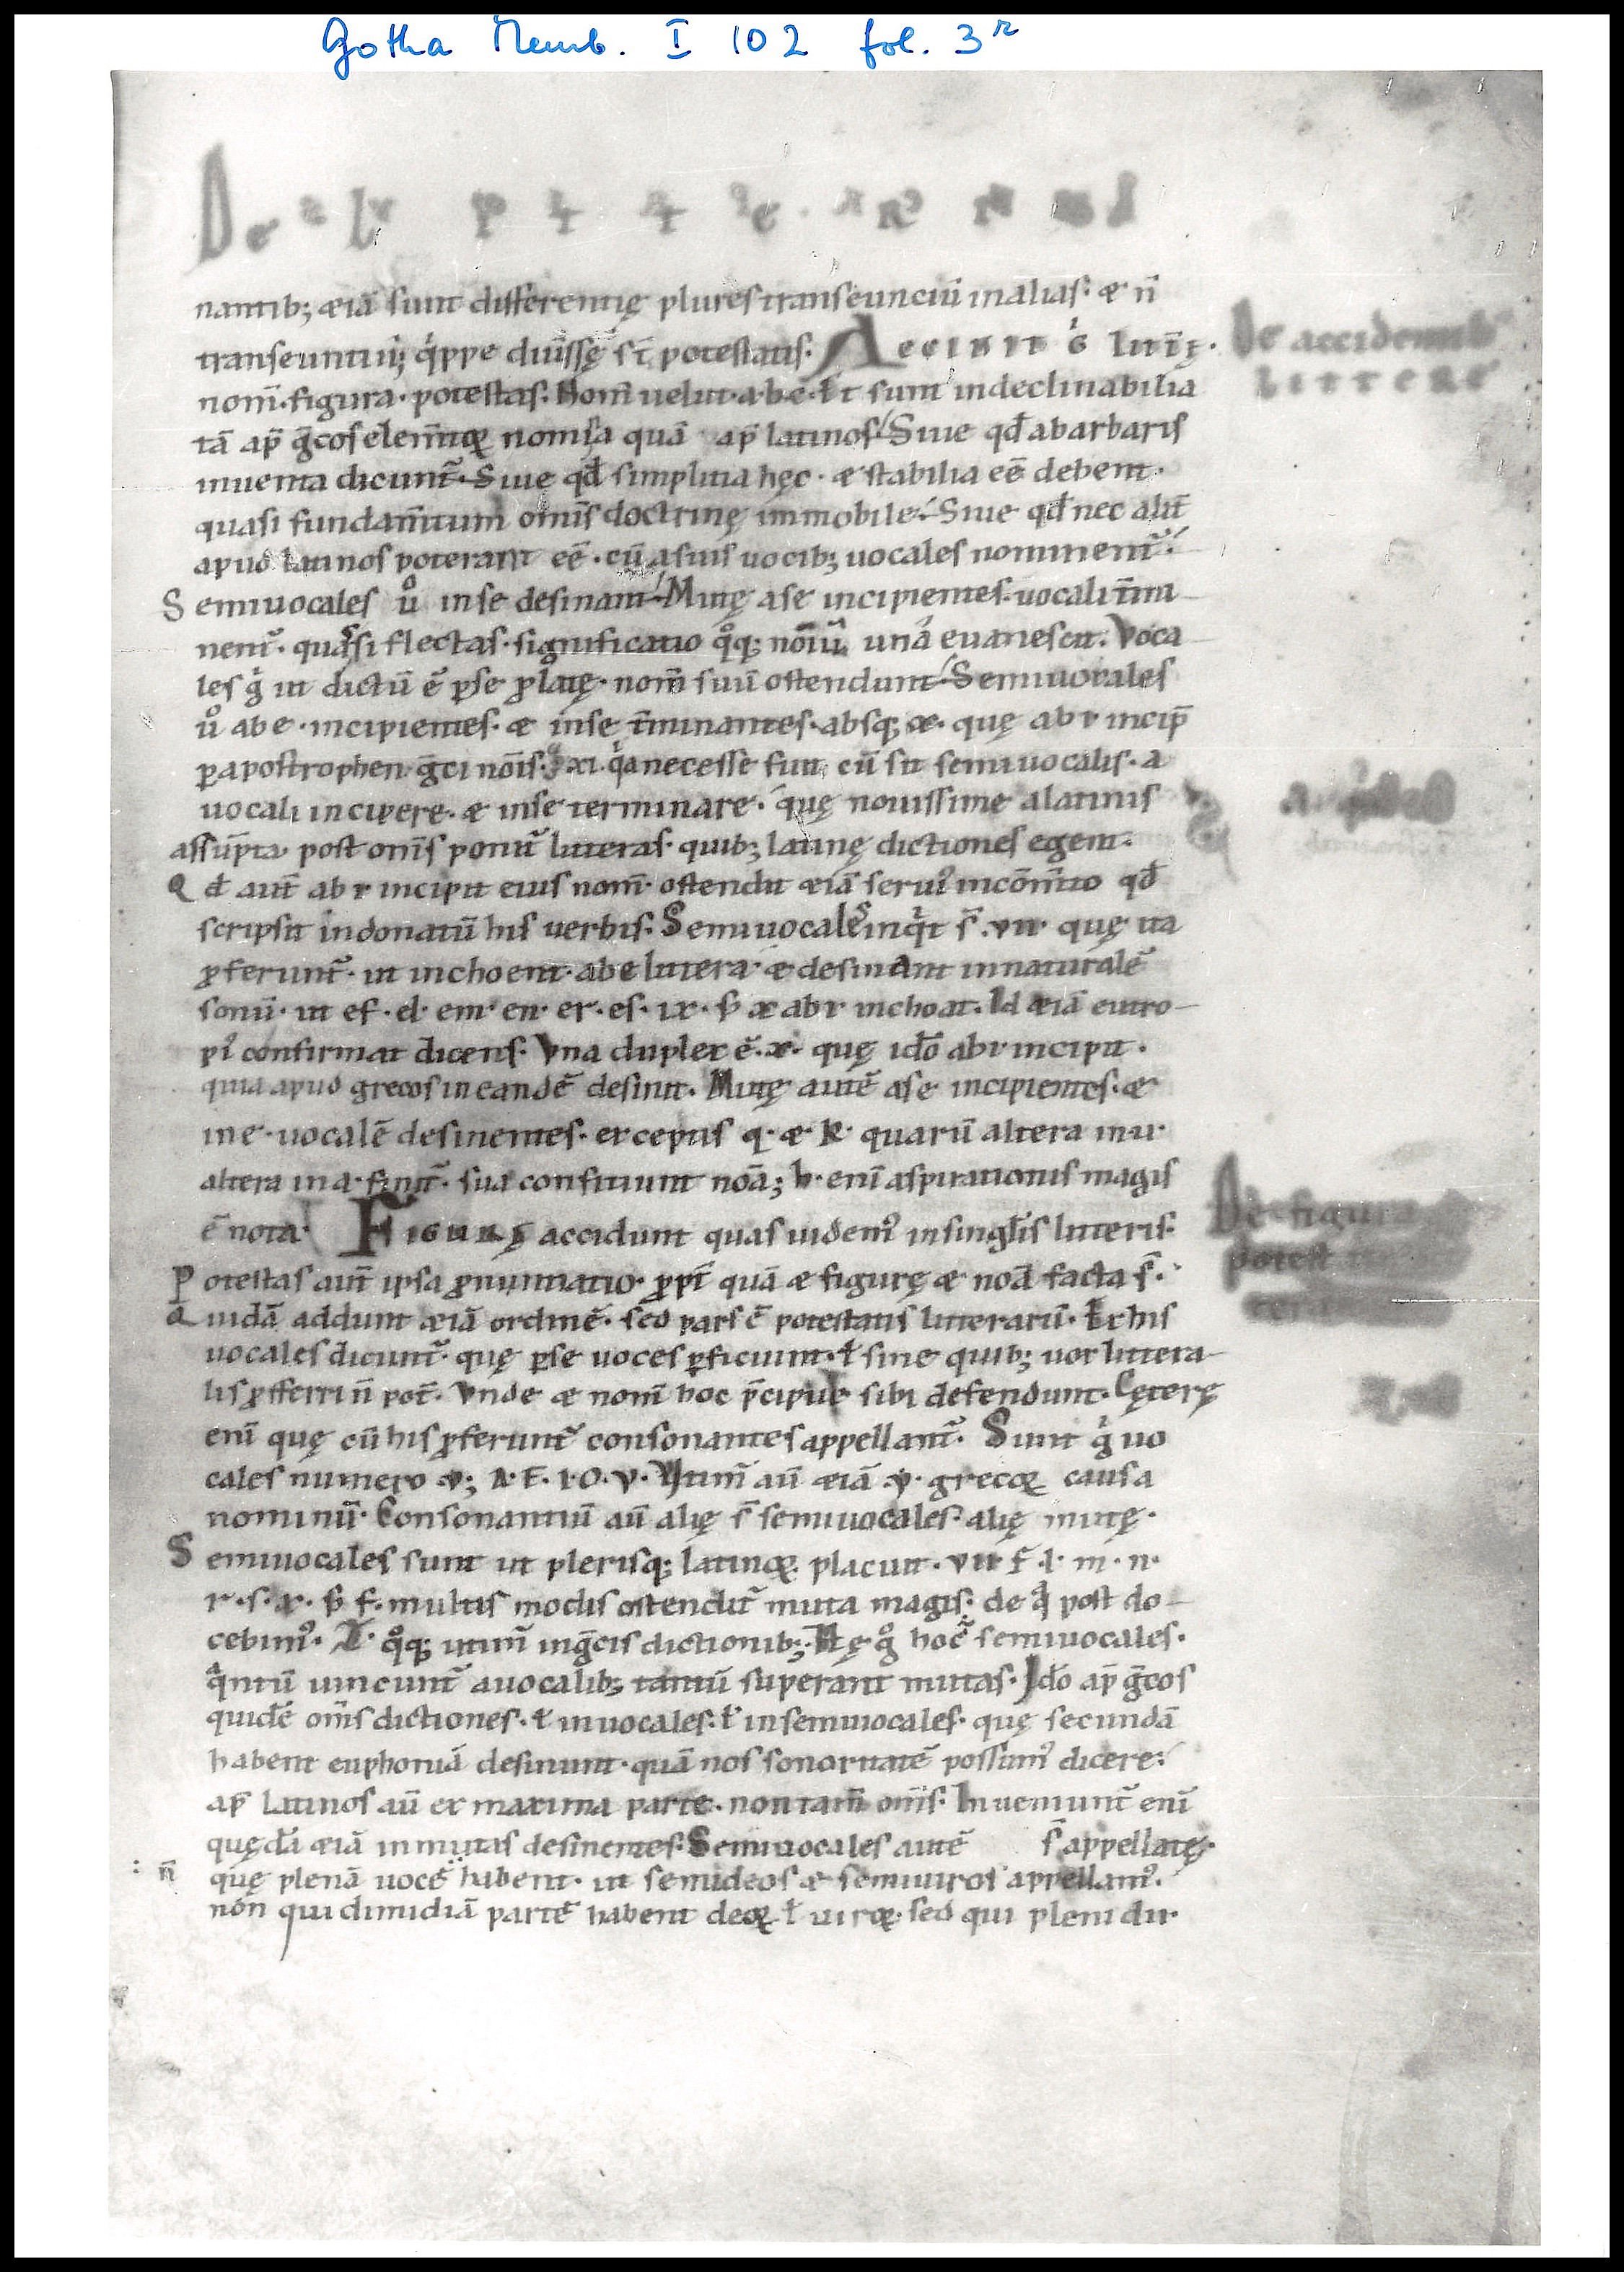 Gotha Memb. I 102 fol. 3r
nantib; æiã sunt differentię plures transeunciũ in alias· æ n̄
transeuntiũ; qͥppe diuīsę st̄ potestatis. Accidit gͥ litt̄ę·
nom̄· figura· potestas. Nom̄ uelut· a· b· c· Et sunt indeclinabilia
tã ap̄ gͣcos elem̄toꝝ nomīa quã ap̄ latinos. Siue qđ abarbaris
inuenta dicunt̄. Siue qđ simplitia hęc· æ stabilia eē debent·
quasi fundam̄tum om̄s doctrinę immobile. Siue qđ nec alit̄
apud latinos poterant eē· cũ asuis uocib; uocales nominent̄.
Semiuocales uͦ in se desinant. Mutę ase incipientes· uocali t̄mi
nent̄· quas si flectas· significatio qͦq; noīũ unã euanescit. Voca
les gͥ ut dictũ ē ꝑse ꝓlatę· nom̄ suũ ostendunt. Semiuocales
uͦ ab e· incipientes· æ in se t̄minantes· absq; x· quę ab ι incip̄
ꝑ apostrophen gͣci nōis· xi· qͥa necesse fuit cũ sit semiuocalis· a
uocali incipere· æ in se terminare· quę nouissime a latinis
assũpta· post om̄s ponit̄ litteras· quib; latinę dictiones egent.
Qđ aut̄ ab ι incipit eius nom̄· ostendit æiã serui᷒ in cōm̄to qđ
scripsit in donatũ his uerbis. Semiuocales inqͥt s̄· vii· quę ita
ꝓferunt̄· ut inchoent· ab e littera· æ desinant in naturalē
sonũ· ut ef· el· em· en· er· es· ix· sꝫ x ab ι inchoat. Id æiã eutro-
pi᷒ confirmat dicens. Vna duplex ē· x· quę idõ ab ι incipit·
quia apud grecos in eandē desinit. Mutę autē ase incipientes· æ
in e· uocalē desinentes· exceptis q· æ k· quarũ altera in u·
altera in a· finit̄· sua confitiunt noīa; h· enī aspirationis magis
ē nota· Figurę accidunt quas uidem᷒ in singłis litteris.
Potestas aut̄ ipsa ꝓnuntiatio· ꝓpt̄ quã æ figurę æ noīa facta s̄.
Quidã addunt æiã ordinē· sed pars ē potestatis litterarũ. Ex his
uocales dicunt̄· quę ꝑse uoces ꝑficiunt· ł sine quib; uox littera-
lis ꝓfferri n̄ pot̄. Vnde æ nom̄ hoc p̄cipue sibi defendunt. Cęterę
enī quę cũ his ꝓferunt̄ consonantes appellant̄. Sunt gͥ uo
cales numero v; A· E· I· O· V· Vtim̄ aũ æiã y· grecoꝝ causa
nominũ. Consonantiũ aũ alię s̄ semiuocales· alię mutę·
Semiuocales sunt ut plerisq; latinoꝝ placuit· vii f· l· m· n·
r· s· x· sꝫ f· multis modis ostendit̄ muta magis· de qͣ post do-
cebim᷒. Z· qͦq; utim̄ in gͣcis dictionib;. Hę gͦ hoc ē semiuocales·
qͣntũ uincunt̄ a uocalib; tantũ superant mutas· Idõ ap̄ gͣcos
quidē om̄s dictiones· ł in uocales· ł in semiuocales· quę secundã
habent euphoniã desinunt· quã nos sonoritatē possum᷒ dicere:
ap̄ latinos aũ ex maxima parte· non tam̄ om̄s. Inueniunt̄ enī
quędã æiã in mutas desinentes. Semiuocales autē s̄ appellatę·
: n̄ quę plenã uocē habent· ut semideos æ semiuiros appellam᷒.
non qui dimidiã partē habent deoꝝ ł uiroꝝ· sed qui pleni dii·
De accidentib᷒
littere
De figura
potest